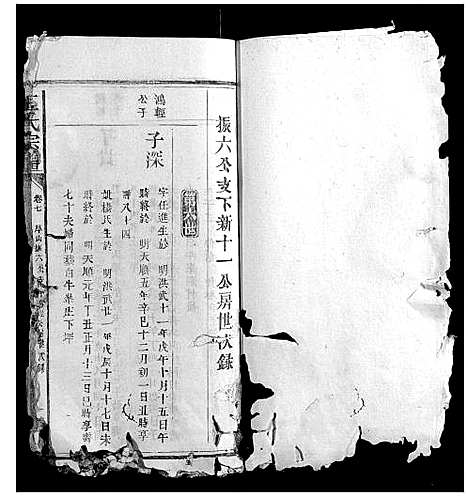 振六公支下新十一公房世次錄
第十六世
鴻輕公子
子深
字任進生於 明洪武十一年戊午十月十五日午
時終於 明天順五年辛巳十二月初一日丑時享
壽八十四
娶楊氏生於 明洪武廿一年戊辰十月十七日未
時終於 明天順元年丁丑正月十三日巳時享壽
七十夫婦同穆白牛畢庄下坪
氏宗譜
卷七